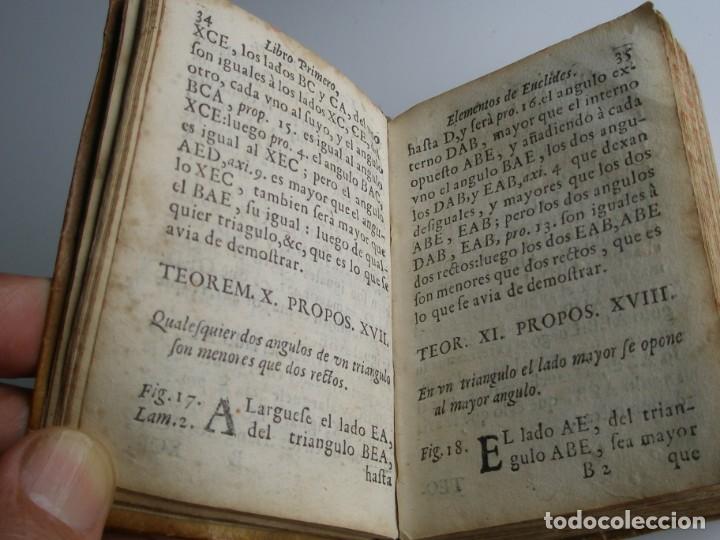 34
Libro Primero,
XCE, los lados BC y CA, del vno
son iguales à los lados XC, CE, del
otro, cada vno al suyo, y el angulo
BCA, prop. 15. es igual al angulo
XCE: luego pro. 4. el angulo BAC,
es igual al XEC; pero el angulo
AED, axi. 9. es mayor que el angu-
lo XEC, tambien serà mayor que
el BAE, su igual: luego de qual-
quier triagulo, &c, que es lo que se
avia de demostrar.
TEOREM. X. PROPOS. XVII.
Qualesquier dos angulos de vn triangulo
son menores que dos rectos.
Fig. 17.
Lam. 2.
ALarguese el lado EA,
del triangulo BEA,
hasta
35
Elementos de Euclides.
hasta D, y serà pro. 16. el angulo ex-
terno DAB, mayor que el interno
opuesto ABE, y añadiendo à cada
vno el angulo BAE, los dos angu-
los DAB, y EAB, axi. 4 que dexan
desiguales, y mayores que los dos
ABE, EAB; pero los dos angulos
DAB, EAB, pro. 13. son iguales à
dos rectos: luego los dos EAB, ABE
son menores que dos rectos, que es
lo que se avia de demostrar.
TEOR. XI. PROPOS. XVIII.
En vn triangulo el lado mayor se opone
al mayor angulo.
Fig. 18.
EL lado AE, del trian-
gulo ABE, sea mayor
B 2 que
todocoleccion.net